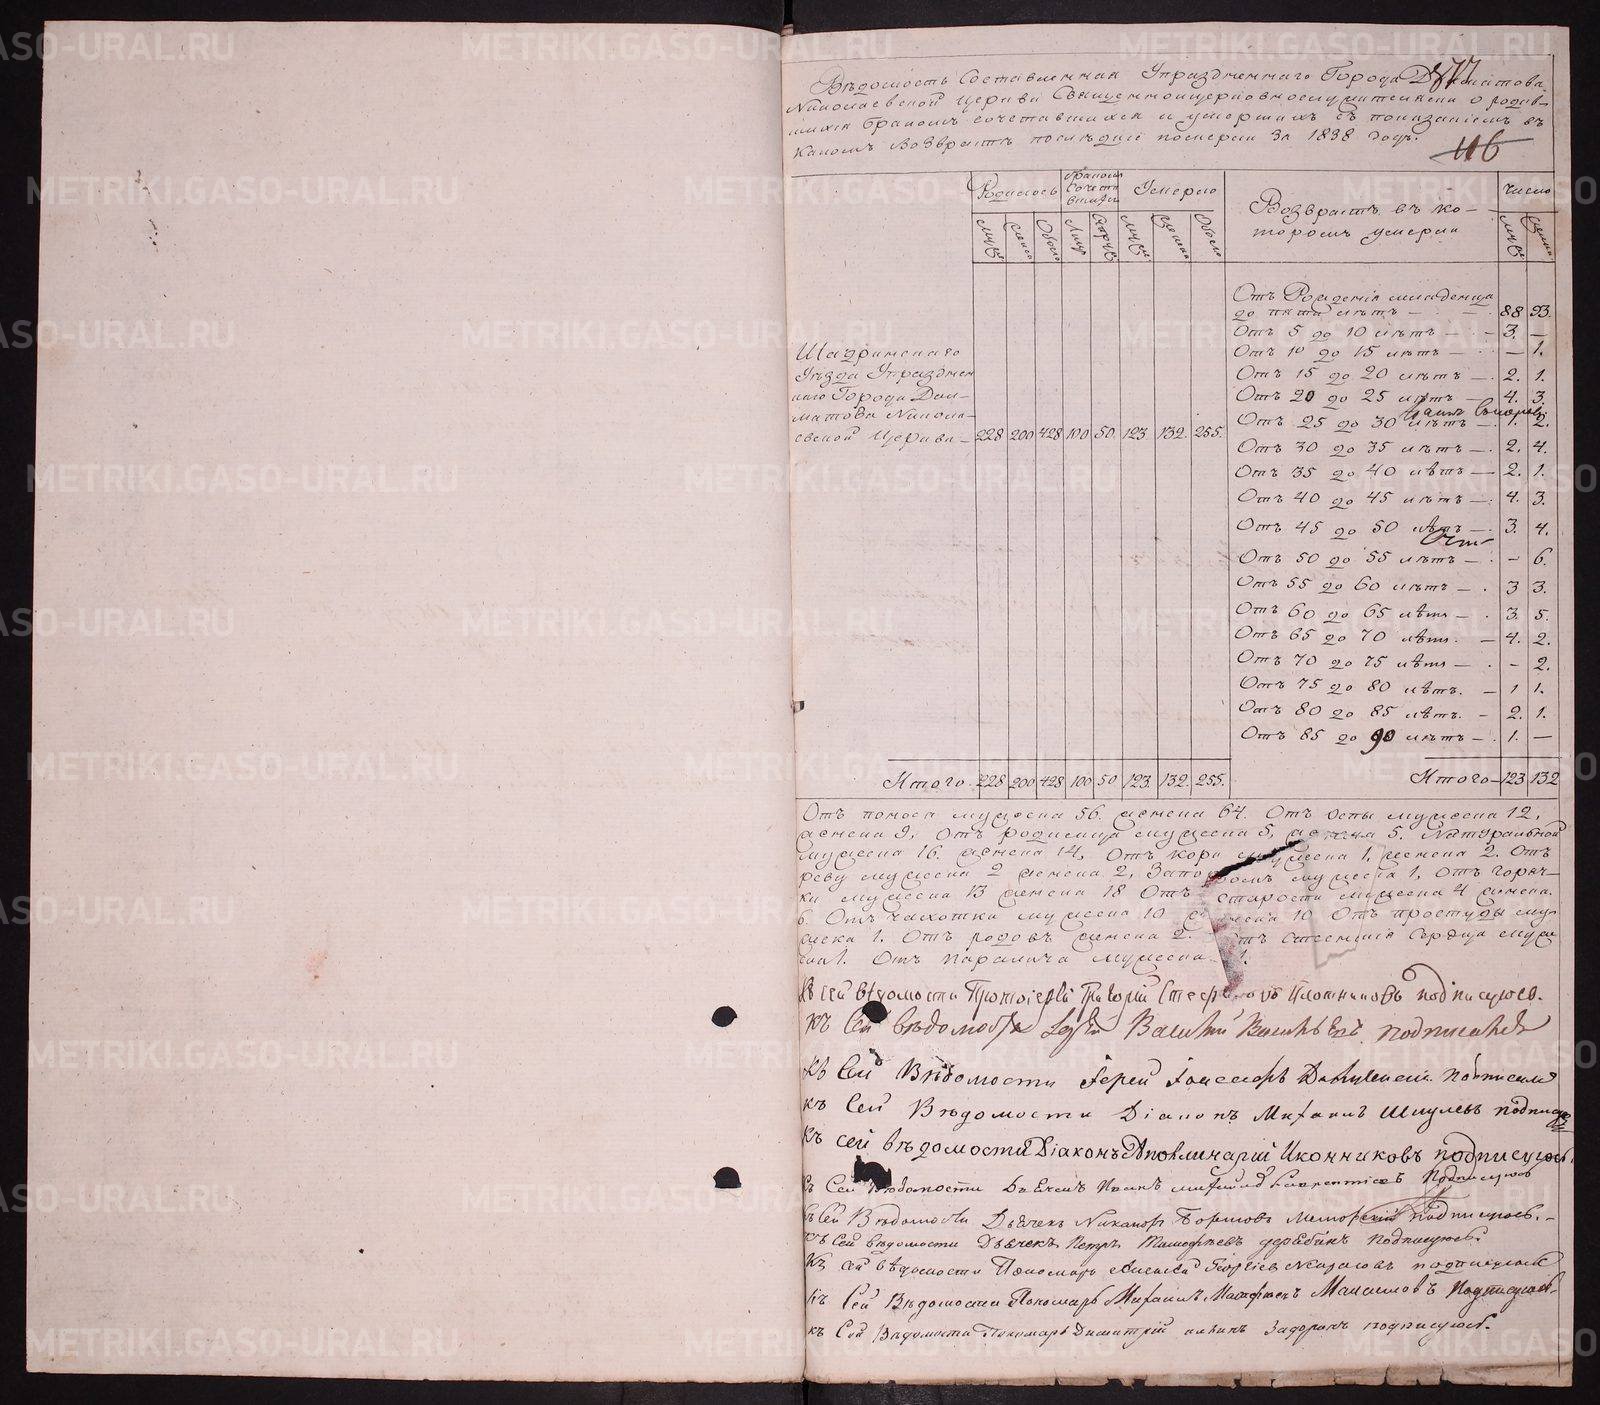 Вѣдомость Составленная Упраздненнаго Города Далматова
877
Николаевской Церкви Священноцерковнослужителями о родив-
шихся бракомъ сочетавшихся и умершихъ съ показаніемъ въ
какомъ возврастѣ послѣдніе померли За 1838 годъ.
116
Родилось Бракомъ Сочета вшихся Умерло Возврастъ въ ко- торомъ умерли число
муж женс Обоего Лицъ муж женс Обоего муж женс
Отъ Рожденія младенца
до пяти лѣтъ — 88 93.
Отъ 5 до 10 лѣтъ — 3. —
Отъ 10 до 15 лѣтъ — — 1.
Отъ 15 до 20 лѣтъ — 2. 1.
Отъ 20 до 25 лѣтъ — 4. 3.
Отъ 25 до 30 лѣтъ — 1. 2.
Отъ 30 до 35 лѣтъ — 2. 4.
Отъ 35 до 40 лѣтъ — 2. 1.
Отъ 40 до 45 лѣтъ — 4. 3.
Отъ 45 до 50 лѣтъ — 3. 4.
Отъ 50 до 55 лѣтъ — - 6.
Отъ 55 до 60 лѣтъ — 3 3.
Отъ 60 до 65 лѣтъ — 3. 5.
Отъ 65 до 70 лѣтъ. — 4. 2.
Отъ 70 до 75 лѣтъ — - 2.
Отъ 75 до 80 лѣтъ. — 1 1.
Отъ 80 до 85 лѣтъ. - 2. 1.
Отъ 85 до 90 лѣтъ - 1. —
Шадринскаго
Уѣзда Упразднен
наго Города Дал-
матова Никола-
евской Церкви — 228 200 428 100 50. 123 132. 255.
Итого 228 200 428 100 50 123. 132. 255. Итого — 123 132
Отъ поноса мужеска 56. женска 64. Отъ Оспы мужеска 12,
женска 9, Отъ родимца мужеска 5, женска 5. Натуральной
мужеска 16. женска 14, Отъ кори мужеска 1, женска 2. Отъ
реву мужеска 2 женска 2, мужеска 1, Отъ горяч-
ки мужеска 13 женска 18 Отъ старости мужеска 4 женска
6. Отъ чахотки мужеска 10 женска 10 Отъ простуды му-
жска 1. Отъ родовъ женска 2. Отъ стесненія Сердца муже
ска 1. Отъ паралича мужеска 1.
Къ сей вѣдомости Протоіерей Григорій Плотниковъ подписуюсь.
Къ Сей вѣдомости Іерей Василій подписался
Къ Сей Вѣдомости Іерей подписался
Къ Сей Вѣдомости Діаконъ Михаилъ подписуюсь
Къ сей вѣдомости Діаконъ Аполлинарій Иконниковъ подписуюсь.
Къ Сей Вѣдомости Дьячекъ Иванъ Подписуюсь
Къ Сей Вѣдомости Дьячекъ Никаноръ подписуюсь.
Къ Сей вѣдомости Дьячекъ Петръ подписуюсь.
Къ сей вѣдомости Пономарь Алексѣй подписуюсь
Къ Сей Вѣдомости Пономарь Михаилъ Максимовъ Подписуюсь.
Къ Сей Вѣдомости Пономарь Димитрій Задоринъ подписуюсь.
METRIKI.GASO-URAL.RU